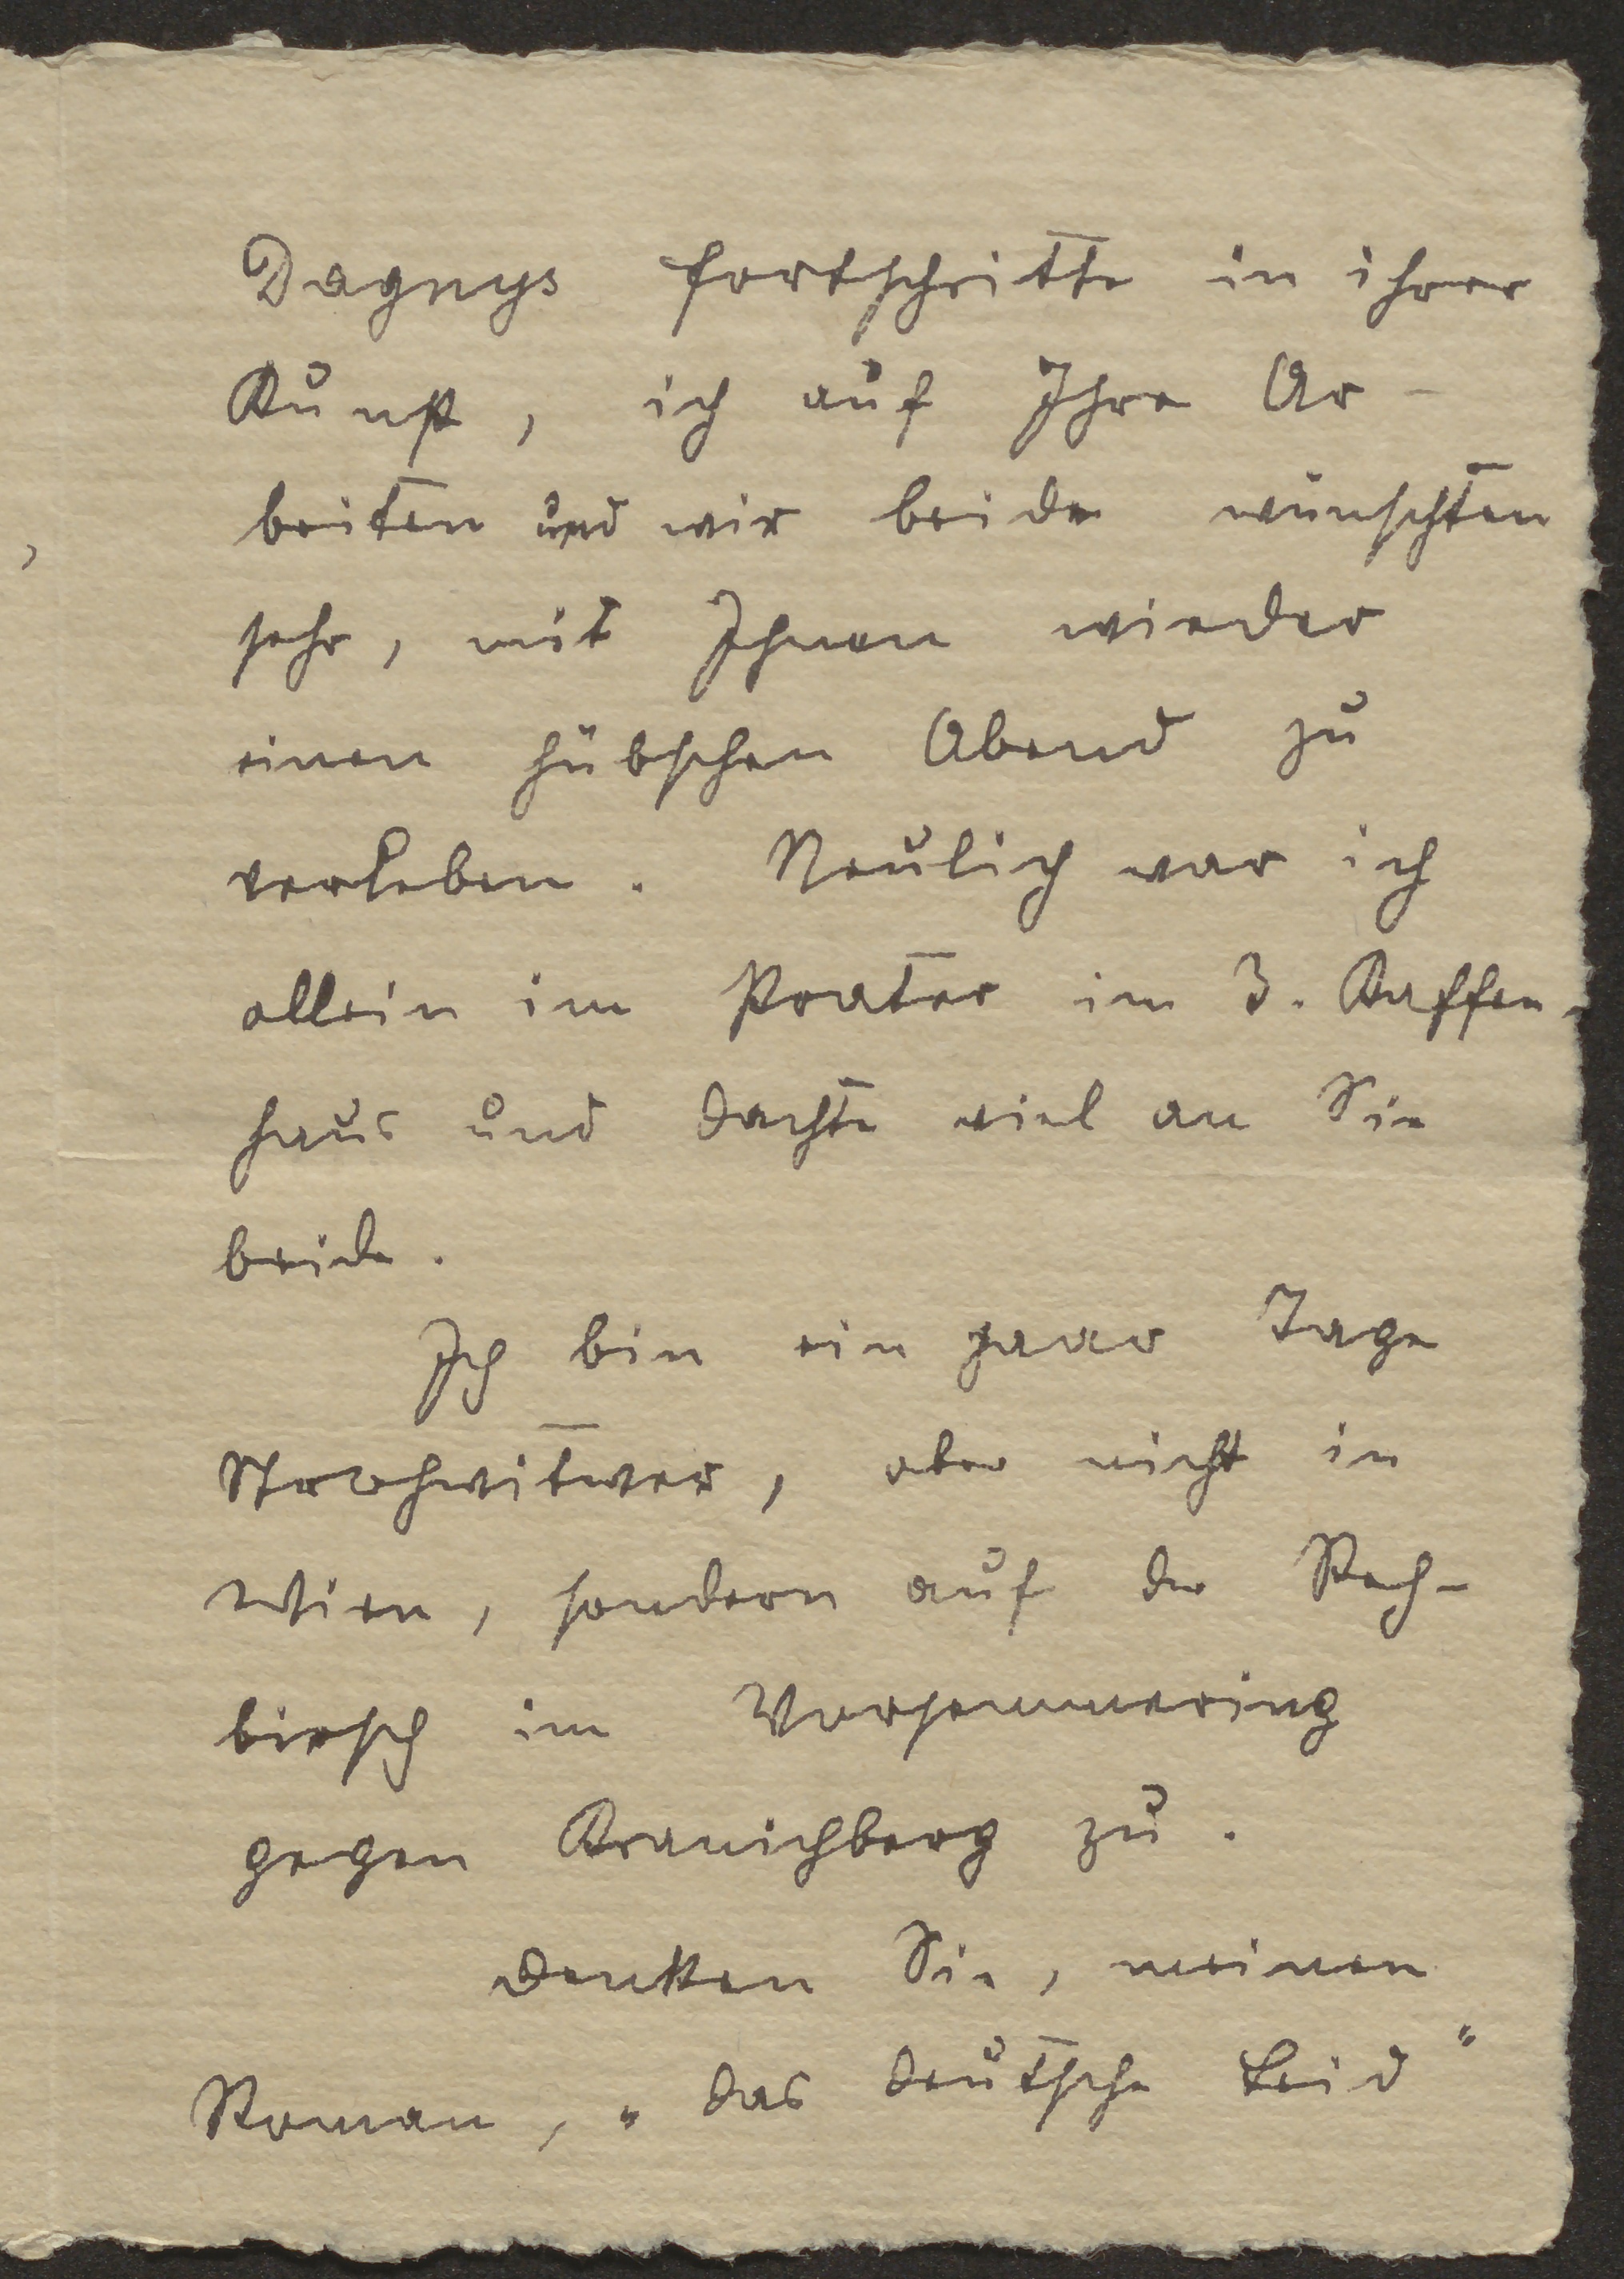 Dagnys Fortschritte in ihrer
Kunst, ich auf Ihre Ar-
beiten und wir beide wünschten
sehr, mit Ihnen wieder
einen hübschen Abend zu
verleben. Neulich war ich
allein im Prater im 3. Kaffee-
haus und dachte viel an Sie
beide.
Ich bin ein paar Tage
Strohwitwer, aber nicht in
Wien, sondern auf der Reh-
birsch im Vorsemmering
gegen Kranichberg zu.
Denken Sie, meinen
Roman, „das deutsche Leid"